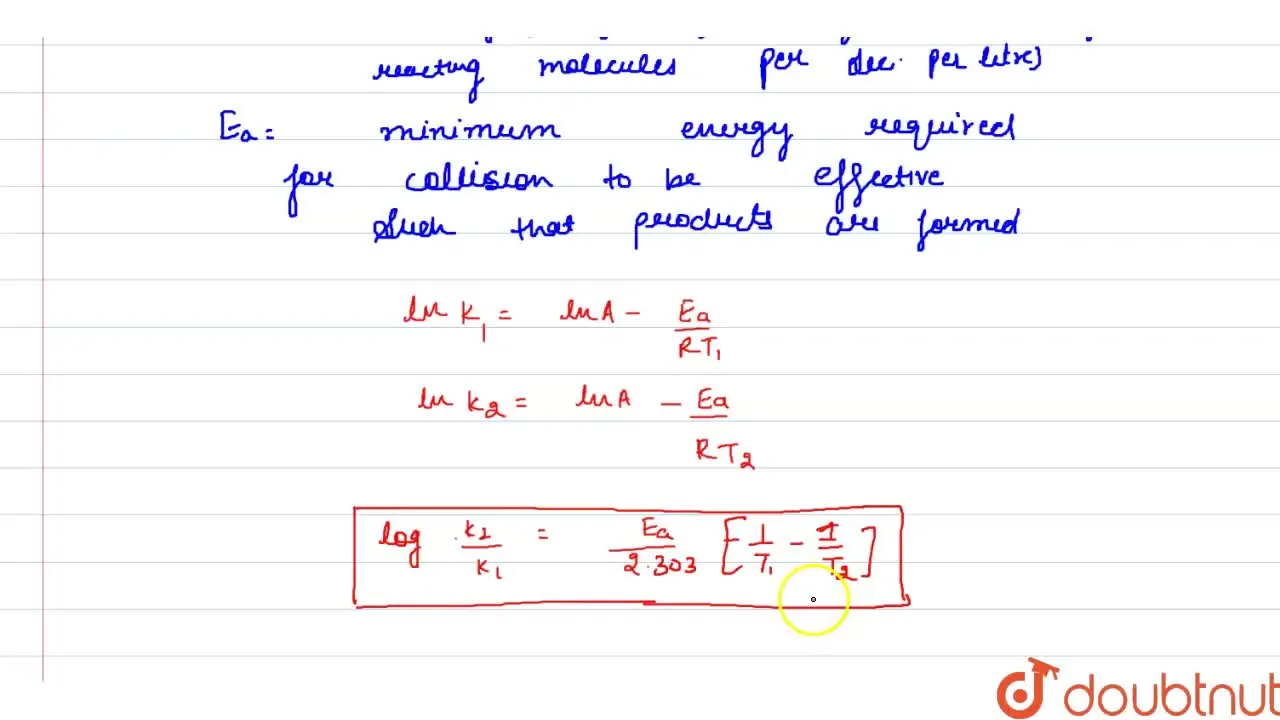 reacting molecules per sec. per litre)
Ea = minimum energy required
for collision to be effective
Such that products are formed
ln K₁ = ln A - Ea/RT₁
ln K₂ = ln A - Ea/RT₂
log K₂/K₁ = Ea/2.303 [1/T₁ - 1/T₂]
doubtnut